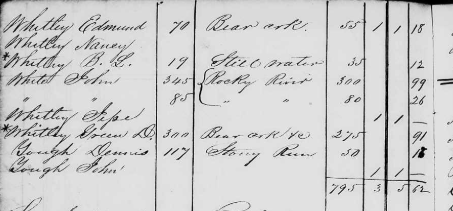 Whitley Edmund 70 Bear ark. 55 1 1 18
Whitley Nancy
*Whitley B. L. 19 Still water 35 12
White John 345 Rocky River 300 99
" " 85 " " 80 26
Whitley 1 1 —
*Whitley Green D. 300 Bear ark &c 275 91
Gough Dennis 117 Stony Run 50 16
Gough John 1 1 —
795 3 5 62